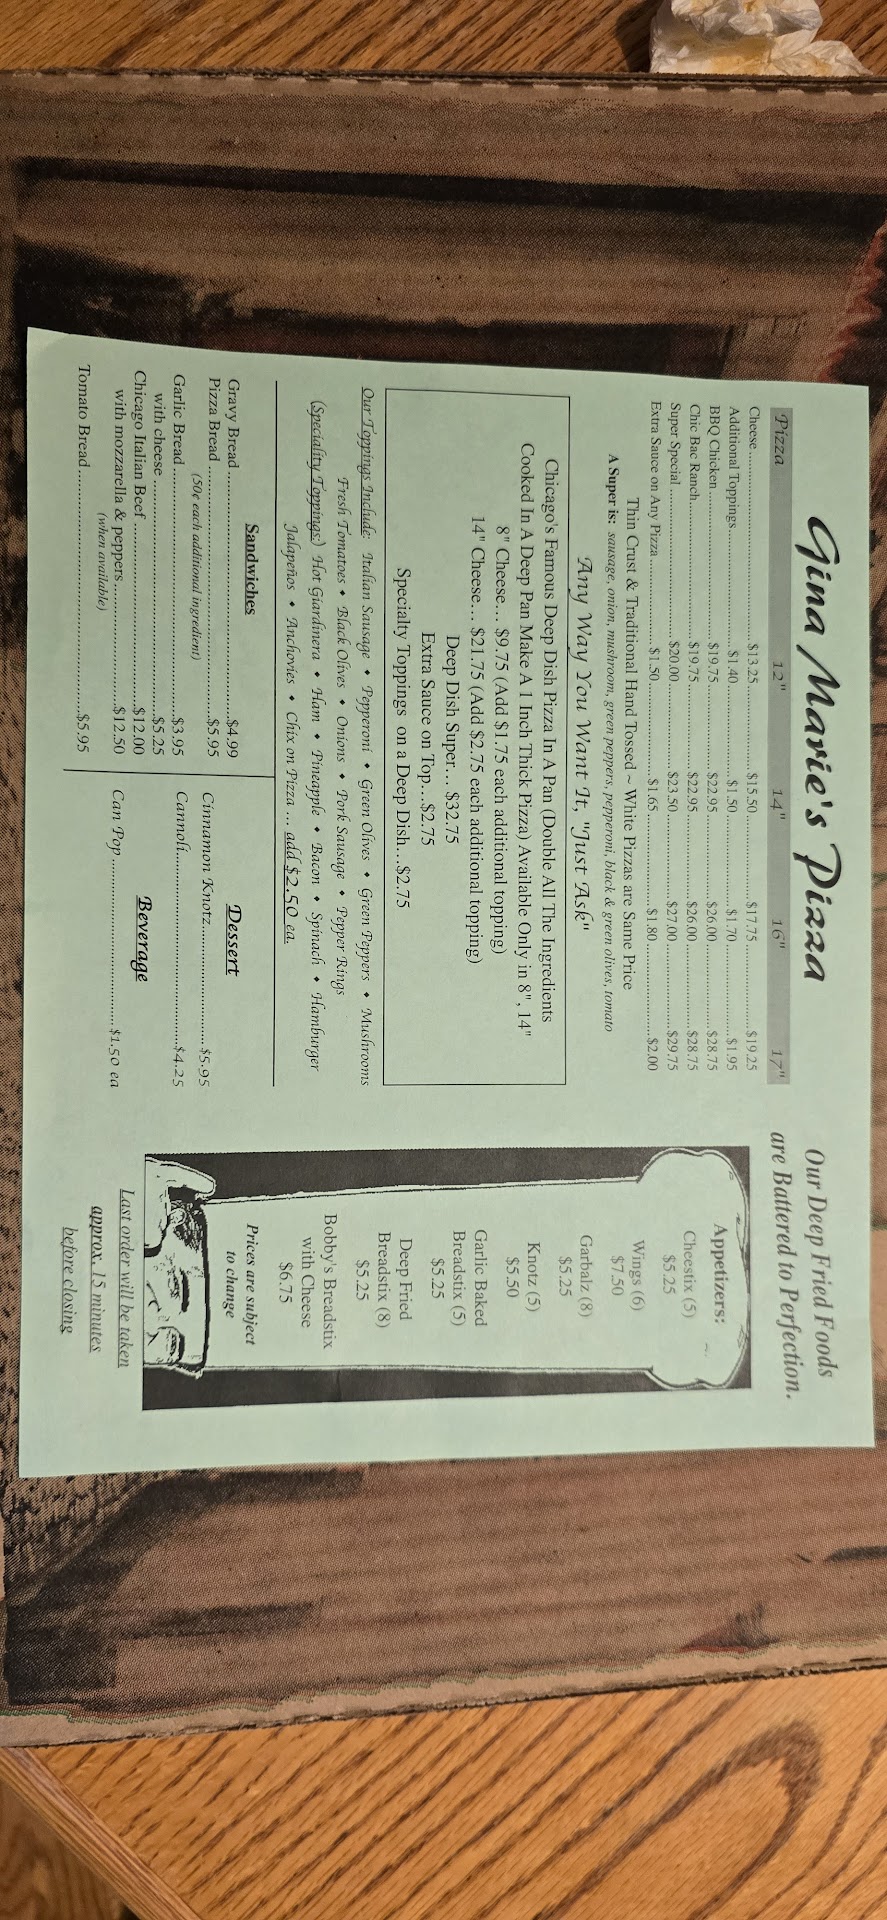 Gina Marie's Pizza
Pizza 12" 14" 16" 17"
Cheese $13.25 $15.50 $17.75 $19.25
Additional Toppings $1.40 $1.50 $1.70 $1.95
BBQ Chicken $19.75 $22.95 $26.00 $28.75
Chic Bac Ranch $19.75 $22.95 $26.00 $28.75
Super Special $20.00 $23.50 $27.00 $29.75
Extra Sauce on Any Pizza $1.50 $1.65 $1.80 $2.00
Thin Crust & Traditional Hand Tossed ~ White Pizzas are Same Price
A Super is: sausage, onion, mushroom, green peppers, pepperoni, black & green olives, tomato
Any Way You Want It, "Just Ask"
Chicago's Famous Deep Dish Pizza In A Pan (Double All The Ingredients
Cooked In A Deep Pan Make A 1 Inch Thick Pizza) Available Only in 8", 14"
8" Cheese... $9.75 (Add $1.75 each additional topping)
14" Cheese... $21.75 (Add $2.75 each additional topping)
Deep Dish Super... $32.75
Extra Sauce on Top...$2.75
Specialty Toppings on a Deep Dish...$2.75
Our Toppings Include: Italian Sausage • Pepperoni • Green Olives • Green Peppers • Mushrooms
Fresh Tomatoes • Black Olives • Onions • Pork Sausage • Pepper Rings
(Speciality Toppings:) Hot Giardinera • Ham • Pineapple • Bacon • Spinach • Hamburger
Jalapeños • Anchovies • Chix on Pizza ... add $2.50 ea.
Sandwiches
Gravy Bread $4.99
Pizza Bread $5.95
(50¢ each additional ingredient)
Garlic Bread $3.95
with cheese $5.25
Chicago Italian Beef $12.00
with mozzarella & peppers $12.50
(when available)
Tomato Bread $5.95
Dessert
Cinnamon Knotz $5.95
Cannoli $4.25
Beverage
Can Pop $1.50 ea
Our Deep Fried Foods
are Battered to Perfection.
Appetizers:
Cheestix (5)
$5.25
Wings (6)
$7.50
Garbalz (8)
$5.25
Knotz (5)
$5.50
Garlic Baked
Breadstix (5)
$5.25
Deep Fried
Breadstix (8)
$5.25
Bobby's Breadstix
with Cheese
$6.75
Prices are subject
to change
Last order will be taken
approx. 15 minutes
before closing